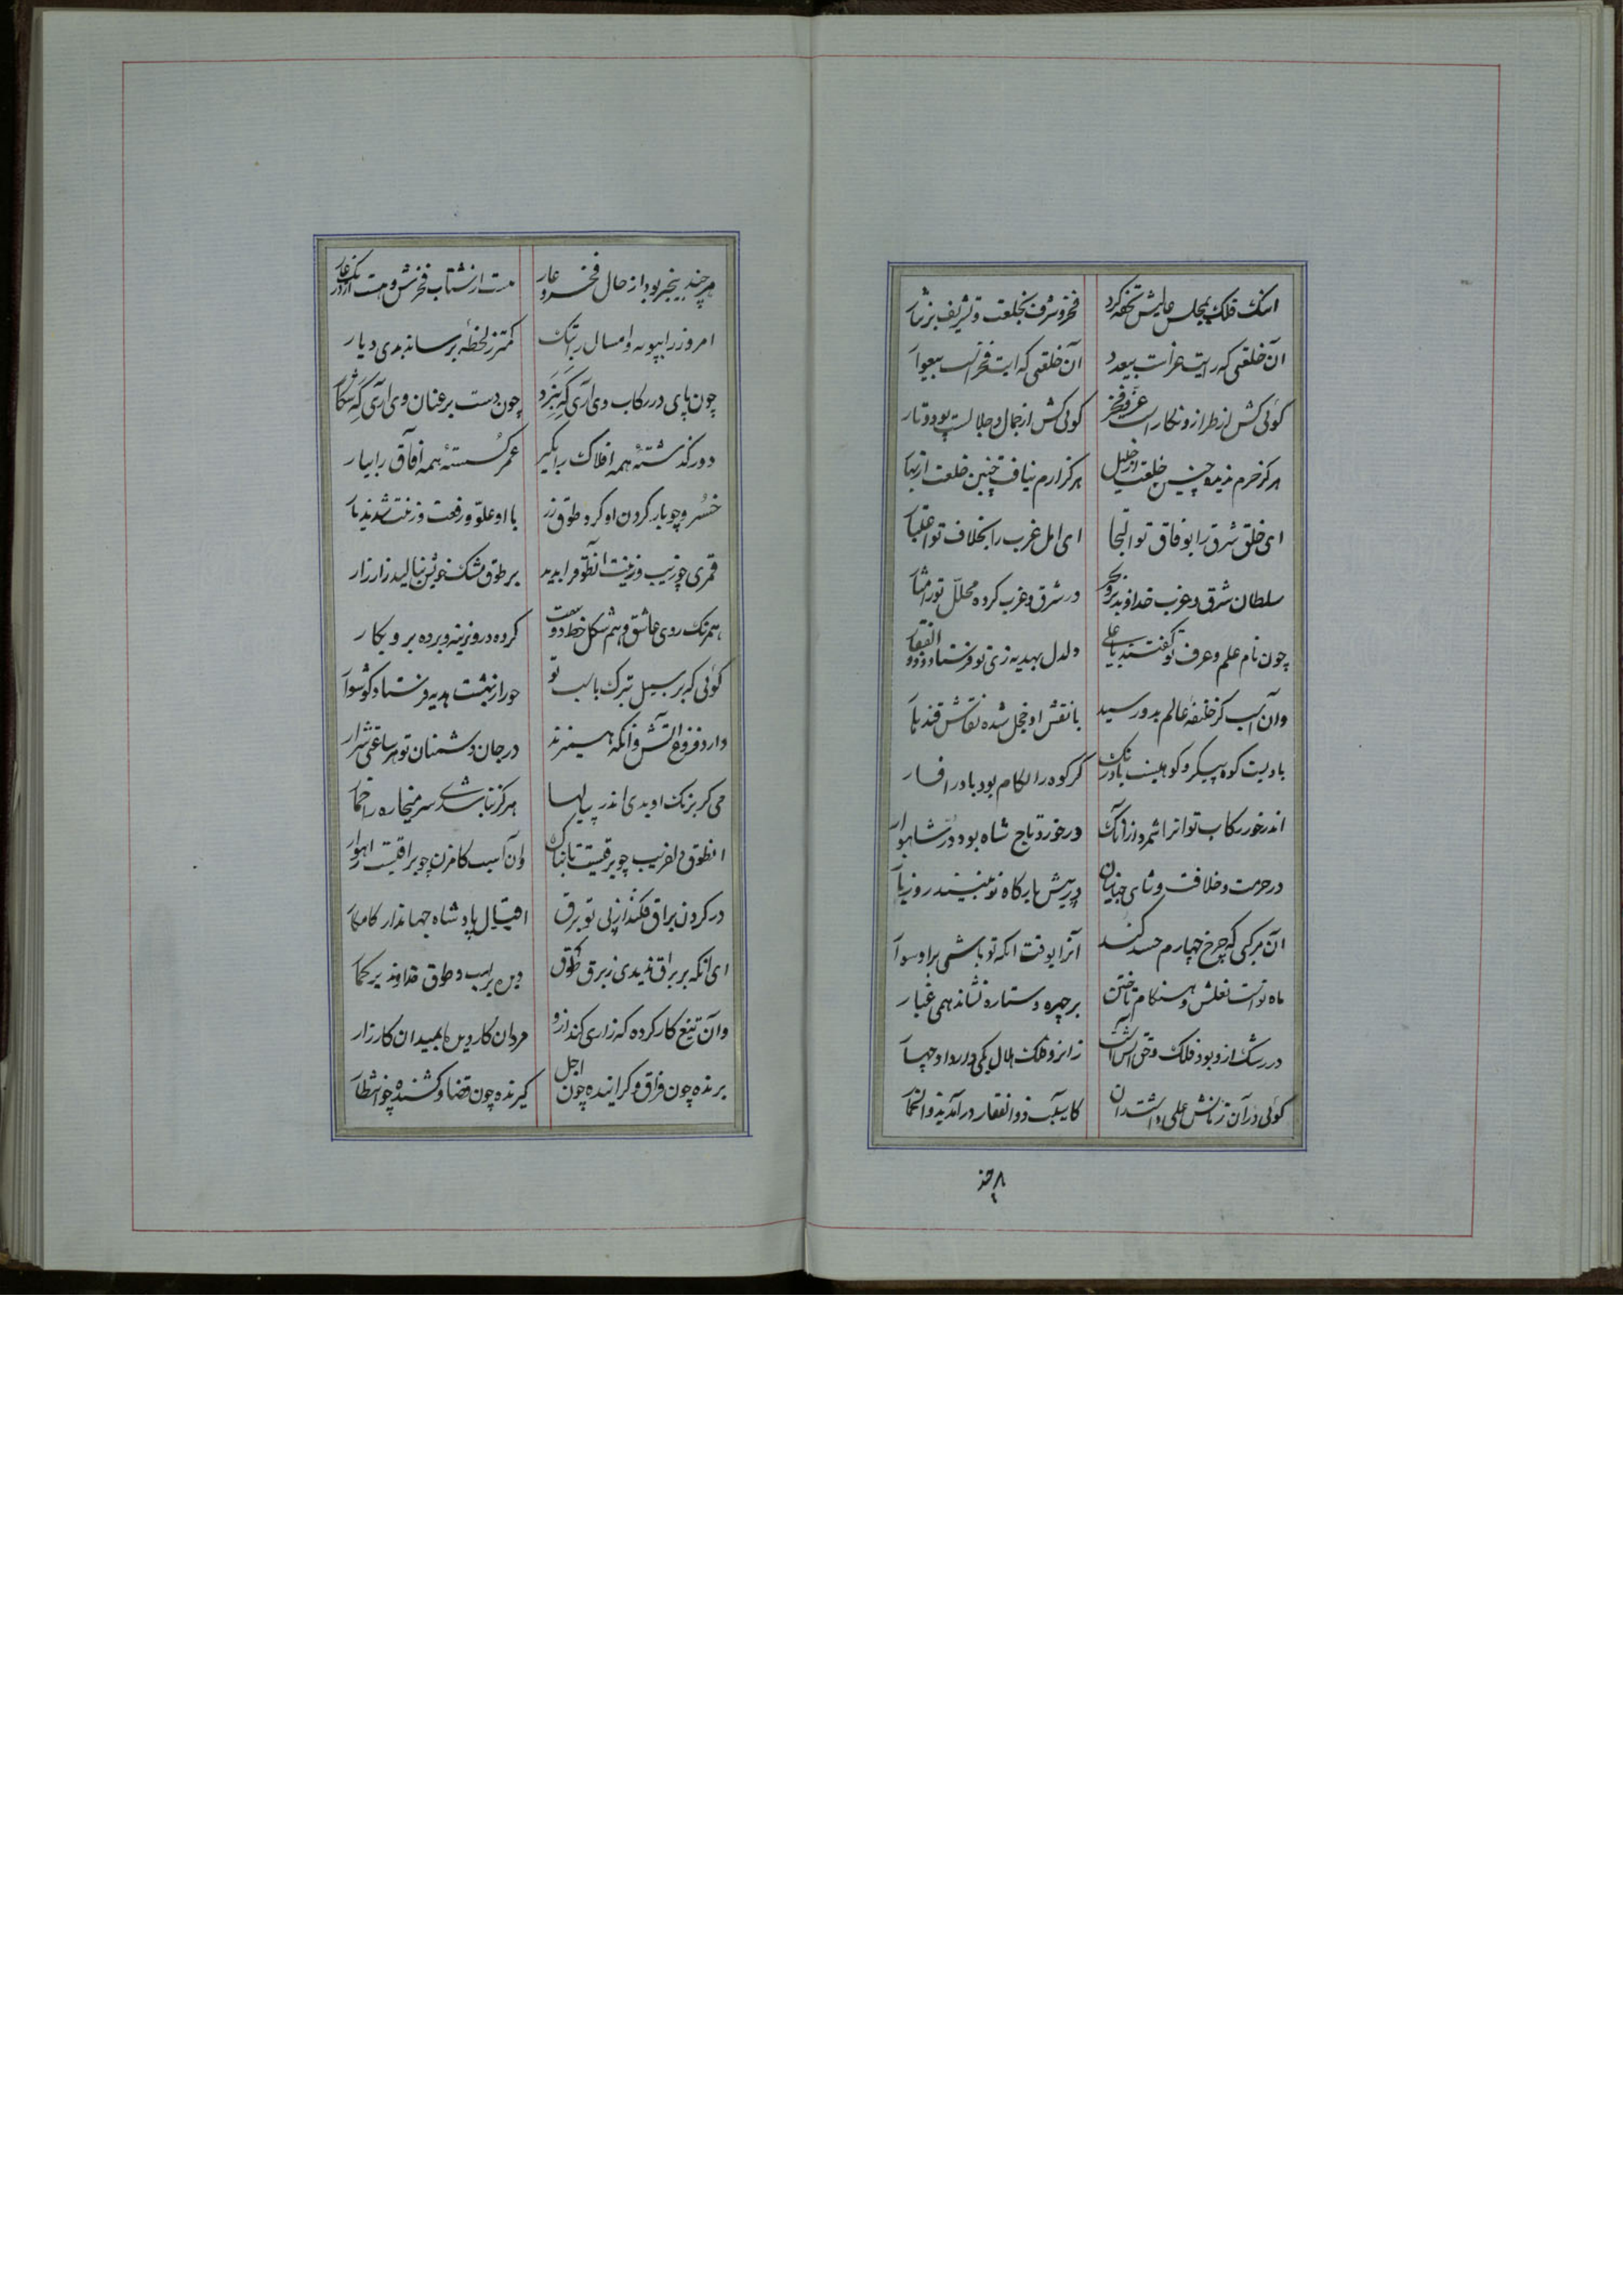 انک فلک بمجلس عالیش تحفه کرد فخر و شرف بخلعت و تشریف بر نثار
آن خلعتی که رایت عز است بیعدد آن خلعتی که ایت فخر است بیعوار
کوئی کش از طراز و نکار است عز و فخر کوئی کش از جمال و جلالست پود و تار
هرکز حرم ندیده چنین خلعت از خلیل هرکز ارم نیافت چنین خلعت از بهار
ای خلق شرق را بوفاق تو التجا ای اهل غرب را بخلاف تو اعتبار
سلطان شرق و غرب خداوند بر و بحر در شرق و غرب کرده محلل تورا مشار
چون نام علم و عرف تو کفتند با علی دلدل بهدیه زی تو فرستاد و ذوالفقار
وان اسب کز خلیفه عالم بدو رسید با نقش او خجل شده نقاش قندهار
بادیست کوه پیکر و کوهیست باد تک کر کوه را لکام بود باد را فسار
اندر خور رکاب تو انرا شمرد از آنک در خورد تاج شاه بود در شاهوار
در حرمت و خلافت و شاهی جهانیان در پیش بارکاه تو بینند روز بار
آن مرکبی که چرخ چهارم حسد کند آنرا بوقت انکه تو باشی برا و سوار
ماه نو است نعلش و هنکام تاختن بر چهره ستاره نشاند همی غبار
در رشک از و بود فلک و حق این است زانرو فلک هلال یکی دارد او چهار
کوئی در آن زمانش علی داشت در ان کاسیب ذوالفقار در آمد بذوالخمار
هر چند
هر چند بیخبر بود از حال فخر و عار هست از شتاب فخرش و هست از درنک عار
امروز را بپویه و امسال را بتک کمتر ز لحظه برساند بدی و پار
چون پای در رکاب وی آری که نبرد چون دست بر عنان وی آری که شکار
دور کذشته همه افلاک را بکیر عمر کسسته همه آفاق را بیار
خسرو چو بار کردن او کرد طوق زر با او علو و رفعت و زینت شدند یار
قمری چو زیب و زینت آنطوق را بدید بر طوق مشک خویش بنالید زار زار
همرنک روی عاشق و هم شکل خط دوست کرده در و زینه و برده بر و بکار
کوئی که بر سبیل تبرک باسب تو حور از بهشت هدیه فرستاد کوشوار
دارد فروغ آتش و آنکه همی زند در جان دشمنان تو هر ساعتی شرار
می کر برنک او بدی اندر پیالها هرکز نباشدی سر میخواره را خمار
انطوق دلفریب چو برقیست تابناک وان اسب کامزن چو براقیست راهوار
در کردن براق فکند از پی تو برق اقبال پادشاه جهاندار کامکار
ای آنکه بر براق ندیدی ز برق طوق بین بر اسب و طوق خداوند بر کمار
وآن تیغ کار کرده که زاری کند از و مردان کار دیده بمیدان کارزار
برنده چون فراق و کراینده چون اجل کیرنده چون قضا و کشنده چو انتظار